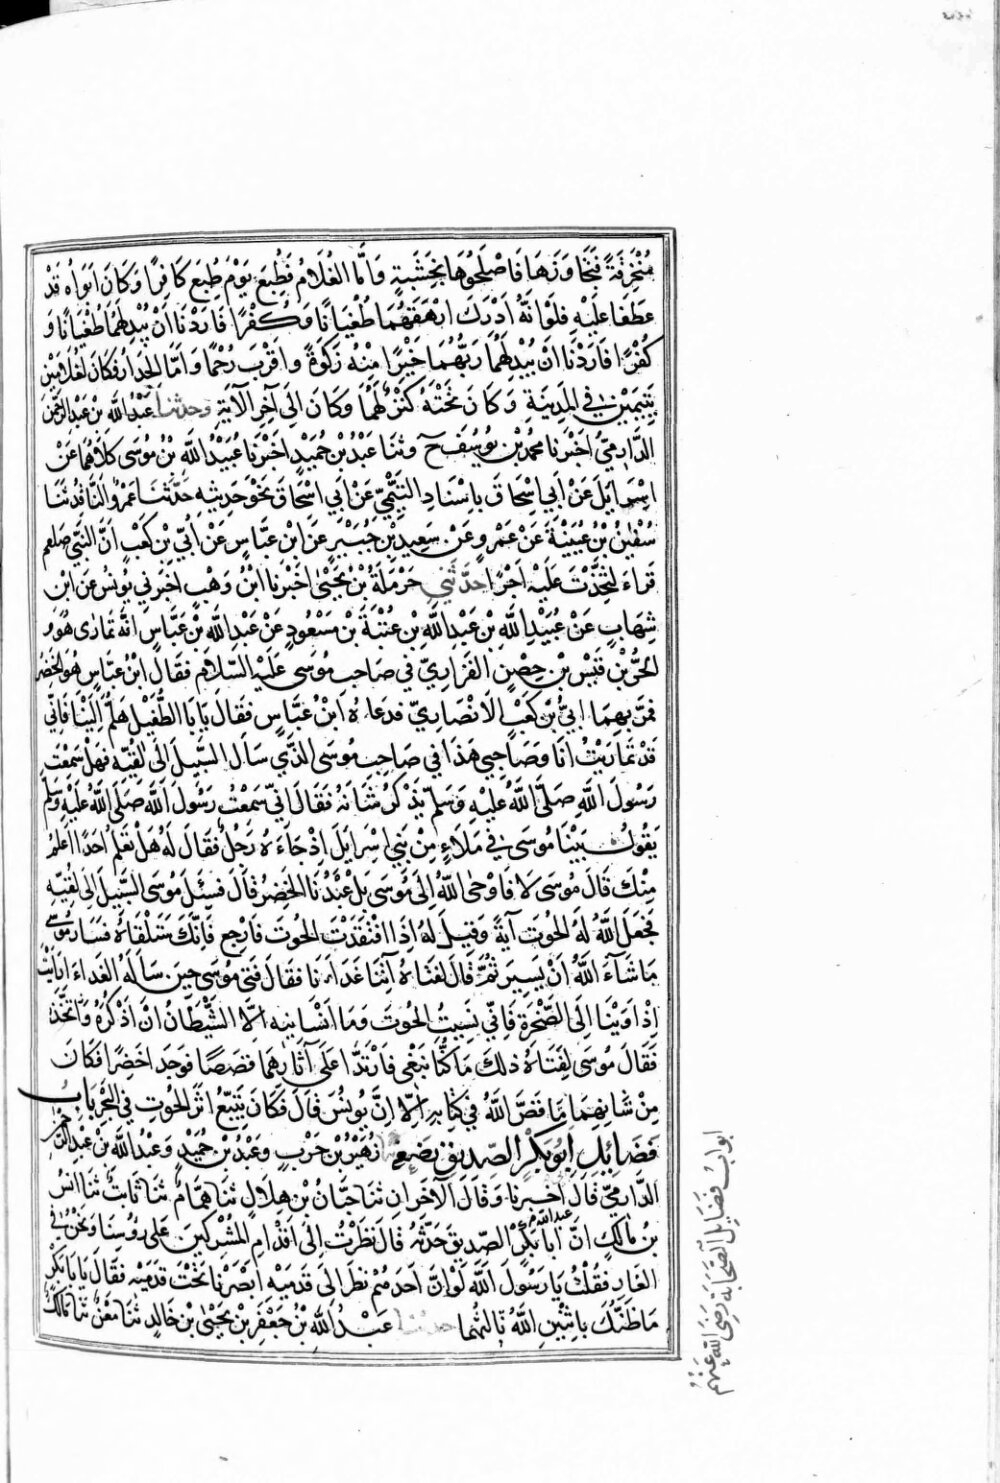 مُنْخَرِقَةً فَتَجَاوَزَهَا فَاصْلَحُوْهَا بِخَشَبَةٍ وَاَمَّا الْغُلَامُ فَطُبِعَ يَوْمَ طُبِعَ كَافِرًا وَكَانَ اَبَوَاهُ قَدْ
عَطَفَا عَلَيْهِ فَلَوْ اَنَّهُ اَدْرَكَ اَرْهَقَهُمَا طُغْيَانًا وَكُفْرًا فَارَدْنَا اَنْ يُبْدِلَهُمَا طُغْيَانًا وَ
كُفْرًا فَارَدْنَا اَنْ يُبْدِلَهُمَا رَبُّهُمَا خَيْرًا مِنْهُ زَكٰوةً وَاَقْرَبَ رُحْمًا وَاَمَّا الْجِدَارُ فَكَانَ لِغُلَامَيْنِ
يَتِيْمَيْنِ فِي الْمَدِيْنَةِ وَكَانَ تَحْتَهُ كَنْزٌ لَهُمَا وَكَانَ اِلَى آخِرِ الْآيَةِ وحدثنا عَبْدُ اللّٰهِ بْنُ عَبْدِ الرَّحْمٰنِ
الدَّارِمِيُّ اَخْبَرَنَا مُحَمَّدُ بْنُ يُوسُفَ ح وثنا عَبْدُ بْنُ حُمَيْدٍ اَخْبَرَنَا عُبَيْدُ اللّٰهِ بْنُ مُوسَى كِلَاهُمَا عَنْ
اِسْرَائِيْلَ عَنْ اَبِي اِسْحَاقَ بِاِسْنَادِ التَّيْمِيِّ عَنْ اَبِي اِسْحَاقَ نَحْوَ حَدِيثِهِ حَدَّثَنَا عَمْرٌو النَّاقِدُ ثَنَا
سُفْيٰنُ بْنُ عُيَيْنَةَ عَنْ عَمْرٍو عَنْ سَعِيدِ بْنِ جُبَيْرٍ عَنِ ابْنِ عَبَّاسٍ عَنْ اُبَيِّ بْنِ كَعْبٍ اَنَّ النَّبِيَّ صلعم
قَرَاءَ لَتَخِذْتَ عَلَيْهِ اَجْرًا حَدَّثَنِي حَرْمَلَةُ بْنُ يَحْيٰى اَخْبَرَنَا ابْنُ وَهْبٍ اخبَرني يُونُسُ عَنِ ابْنِ
شِهَابٍ عَنْ عُبَيْدِ اللّٰهِ بْنِ عَبْدِ اللّٰهِ بْنِ عُتْبَةَ بْنِ مَسْعُودٍ عَنْ عَبْدِ اللّٰهِ بْنِ عَبَّاسٍ اَنَّهُ تَمَارٰى هُوَ وَ
الْحُرُّ بْنُ قَيْسِ بْنِ حِصْنٍ الْفَزَارِيُّ فِي صَاحِبِ مُوسَى عَلَيْهِ السَّلَامُ فَقَالَ ابْنُ عَبَّاسٍ هُوَ الْخَضِرُ
فَمَرَّ بِهِمَا اُبَيُّ بْنُ كَعْبٍ الْاَنْصَارِيُّ فَدَعَاهُ ابْنُ عَبَّاسٍ فَقَالَ يَا بَا الطُّفَيْلِ هَلُمَّ اِلَيْنَا فَاِنِّي
قَدْ تَمَارَيْتُ اَنَا وَصَاحِبِي هَذَا فِي صَاحِبِ مُوسَى الَّذِي سَاَلَ السَّبِيلَ اِلَى لُقِيِّهِ فَهَلْ سَمِعْتَ
رَسُولَ اللّٰهِ صَلَّى اللّٰهُ عَلَيْهِ وَسَلَّمَ يَذْكُرُ شَانَهُ فَقَالَ اِنِّي سَمِعْتُ رَسُولَ اللّٰهِ صَلَّى اللّٰهُ عَلَيْهِ وَسَلَّمَ
يَقُولُ بَيْنَا مُوسَى فِي مَلَاءٍ مِنْ بَنِي اِسْرَائِيلَ اِذْ جَاءَهُ رَجُلٌ فَقَالَ لَهُ هَلْ تَعْلَمُ اَحَدًا اَعْلَمُ
مِنْكَ قَالَ مُوسَى لَا فَاَوْحَى اللّٰهُ اِلَى مُوسَى بَلْ عَبْدُنَا الْخَضِرُ قَالَ فَسَئَلَ مُوسَى السَّبِيلَ اِلَى لُقِيِّهِ
فَجَعَلَ اللّٰهُ لَهُ الْحُوتَ آيَةً وَقِيلَ لَهُ اِذَا افْتَقَدْتَ الْحُوتَ فَارْجِعْ فَاِنَّكَ سَتَلْقَاهُ فَسَارَ مُوسٰى
مَا شَاءَ اللّٰهُ اَنْ يَسِيرَ ثُمَّ قَالَ لِفَتَاهُ آتِنَا غَدَاءَنَا فَقَالَ فَتَى مُوسَى حِينَ سَاَلَهُ الْغَدَاءَ اَرَاَيْتَ
اِذْ اَوَيْنَا اِلَى الصَّخْرَةِ فَاِنِّي نَسِيتُ الْحُوتَ وَمَا اَنْسَانِيهِ اِلَّا الشَّيْطَانُ اَنْ اَذْكُرَهُ وَاتَّخَذَ
فَقَالَ مُوسَى لِفَتَاهُ ذٰلِكَ مَا كُنَّا نَبْغِي فَارْتَدَّا عَلَى آثَارِهِمَا قَصَصًا فَوَجَدَا خَضِرًا فَكَانَ
مِنْ شَانِهِمَا مَا قَصَّ اللّٰهُ فِي كِتَابِهِ اِلَّا اَنَّ يُونُسَ قَالَ فَكَانَ يَتَّبِعُ اَثَرَ الْحُوتِ فِي الْبَحْرِ بَابُ
فَضَائِلِ اَبُو بَكْرٍ الصِّدِّيقِ زُهَيْرُ بْنُ حَرْبٍ وَعَبْدُ بْنُ حُمَيْدٍ وَعَبْدُ اللّٰهِ بْنُ عَبْدِ الرَّحْمٰنِ
الدَّارِمِيُّ قَالَ اَخْبَرَنَا وَقَالَ الْآخَرَانِ ثَنَا حَبَّانُ بْنُ هِلَالٍ ثَنَا هَمَّامٌ ثَنَا ثَابِتٌ ثَنَا اَنَسُ
بْنُ مَالِكٍ اَنَّ اَبَا بَكْرٍ الصِّدِّيقَ حَدَّثَهُ قَالَ نَظَرْتُ اِلَى اَقْدَامِ الْمُشْرِكِينَ عَلَى رُؤُسِنَا وَنَحْنُ فِي
الْغَارِ فَقُلْتُ يَا رَسُولَ اللّٰهِ لَوْ اَنَّ اَحَدَهُمْ نَظَرَ اِلَى قَدَمَيْهِ اَبْصَرَنَا تَحْتَ قَدَمَيْهِ فَقَالَ يَا بَا بَكْرٍ
مَا ظَنُّكَ بِاثْنَيْنِ اللّٰهُ ثَالِثُهُمَا حدثنا عَبْدُ اللّٰهِ بْنُ جَعْفَرِ بْنِ يَحْيٰى بْنِ خَالِدٍ ثَنَا مَعْنٌ ثَنَا مَالِكٌ
ابواب فضايل الصحابة رضى الله عنهم